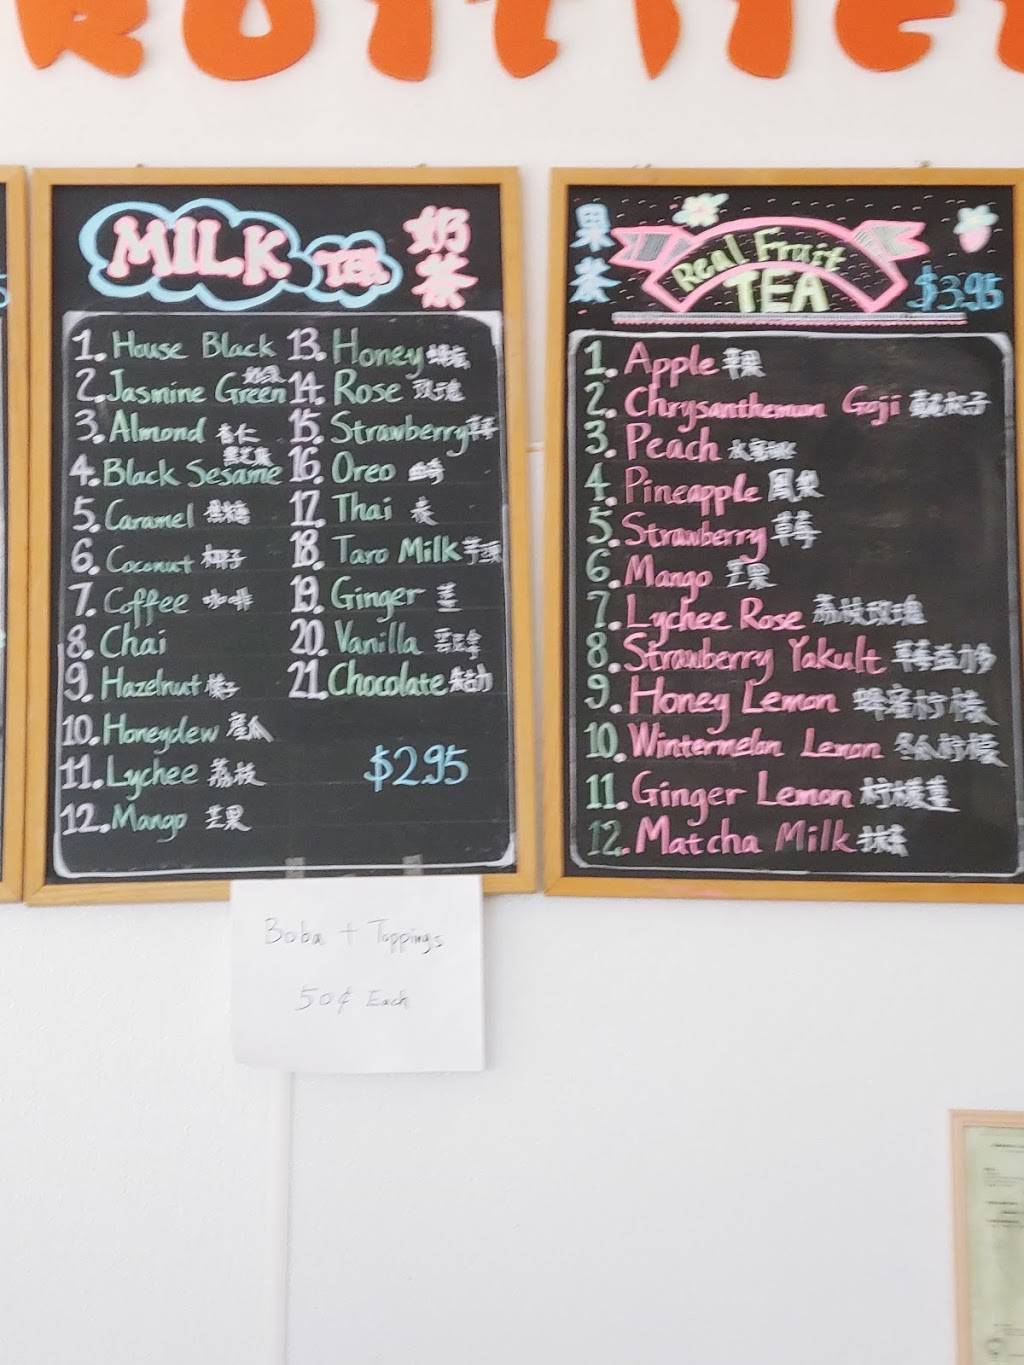 MILK TEA 奶茶
1. House Black
2. Jasmine Green 奶绿
3. Almond 杏仁
4. Black Sesame 黑芝麻
5. Caramel 焦糖
6. Coconut 椰子
7. Coffee 咖啡
8. Chai
9. Hazelnut 榛子
10. Honeydew 蜜瓜
11. Lychee 荔枝
12. Mango 芒果
13. Honey 蜂蜜
14. Rose 玫瑰
15. Strawberry 草莓
16. Oreo
17. Thai 泰
18. Taro Milk 芋頭
19. Ginger 薑
20. Vanilla
21. Chocolate
$2.95
Boba + Toppings
50¢ Each
果茶
Real Fruit
TEA
$3.95
1. Apple 苹果
2. Chrysanthemum Goji 菊花杞子
3. Peach 水蜜桃
4. Pineapple 鳳梨
5. Strawberry 草莓
6. Mango 芒果
7. Lychee Rose 荔枝玫瑰
8. Strawberry Yakult 草莓益力多
9. Honey Lemon 蜂蜜柠檬
10. Wintermelon Lemon 冬瓜柠檬
11. Ginger Lemon 柠檬薑
12. Matcha Milk 抹茶